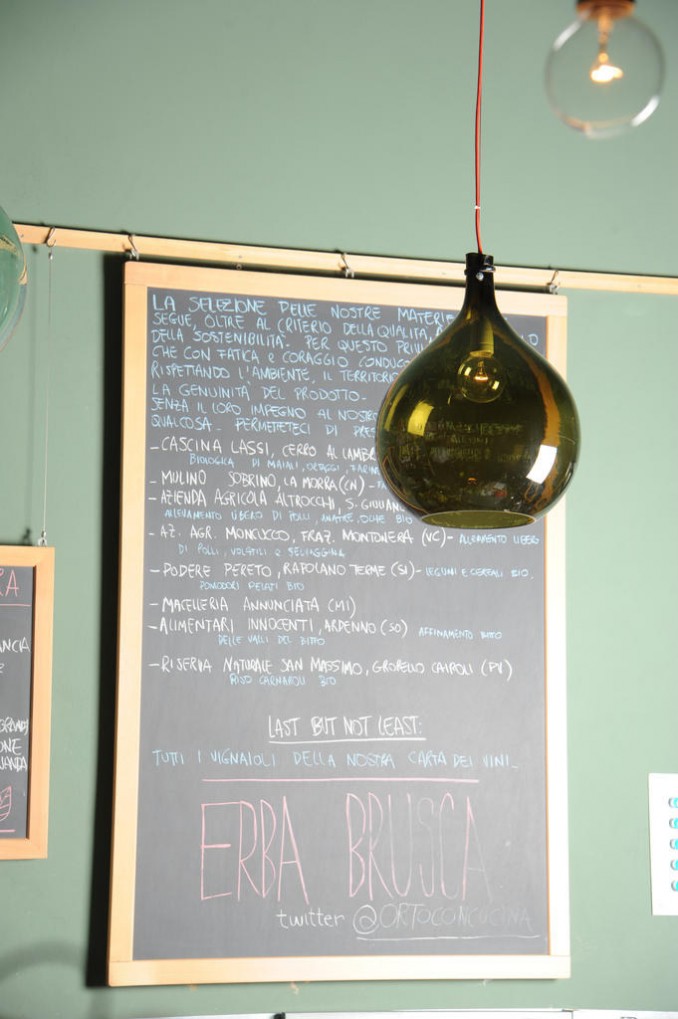 LA SELEZIONE DELLE NOSTRE MATERIE
SEGUE, OLTRE AL CRITERIO DELLA QUALITÀ,
DELLA SOSTENIBILITÀ. PER QUESTO
CHE CON FATICA E CORAGGIO
RISPETTANDO L'AMBIENTE, IL TERRITORIO
LA GENUINITÀ DEL PRODOTTO-
SENZA IL LORO IMPEGNO AL NOSTRO
QUALCOSA. PERMETETECI DI
-CASCINA LASSI, CERRO AL
BIOLOGICA DI MAIALI, ORTAGGI,
-MULINO SOBRINO, LA MORRA (CN)-
-AZIENDA AGRICOLA ALTROCCHI, S. GIULIANO
ALLEVAMENTO LIBERO DI POLLI, ANATRE, OCHE BIO
-AZ. AGR. MONCUCCO, FRAZ. MONTONERA (VC)- ALLEVAMENTO LIBERO
DI POLLI, VOLATILI E SELVAGGINA
-PODERE PERETO, RAPOLANO TERME (SI)- LEGUMI E CEREALI BIO.
POMODORI PELATI BIO
-MACELLERIA ANNUNCIATA (MI)
-ALIMENTARI INNOCENTI, ARDENNO (SO) AFFINAMENTO BITTO
DELLE VALLI DEL BITTO
-RISERVA NATURALE SAN MASSIMO, GROPELLO CAIROLI (PV)
RISO CARNAROLI BIO
LAST BUT NOT LEAST:
TUTTI I VIGNAIOLI DELLA NOSTRA CARTA DEI VINI-
ERBA BRUSCA
twitter @ORTOCONCUCINA